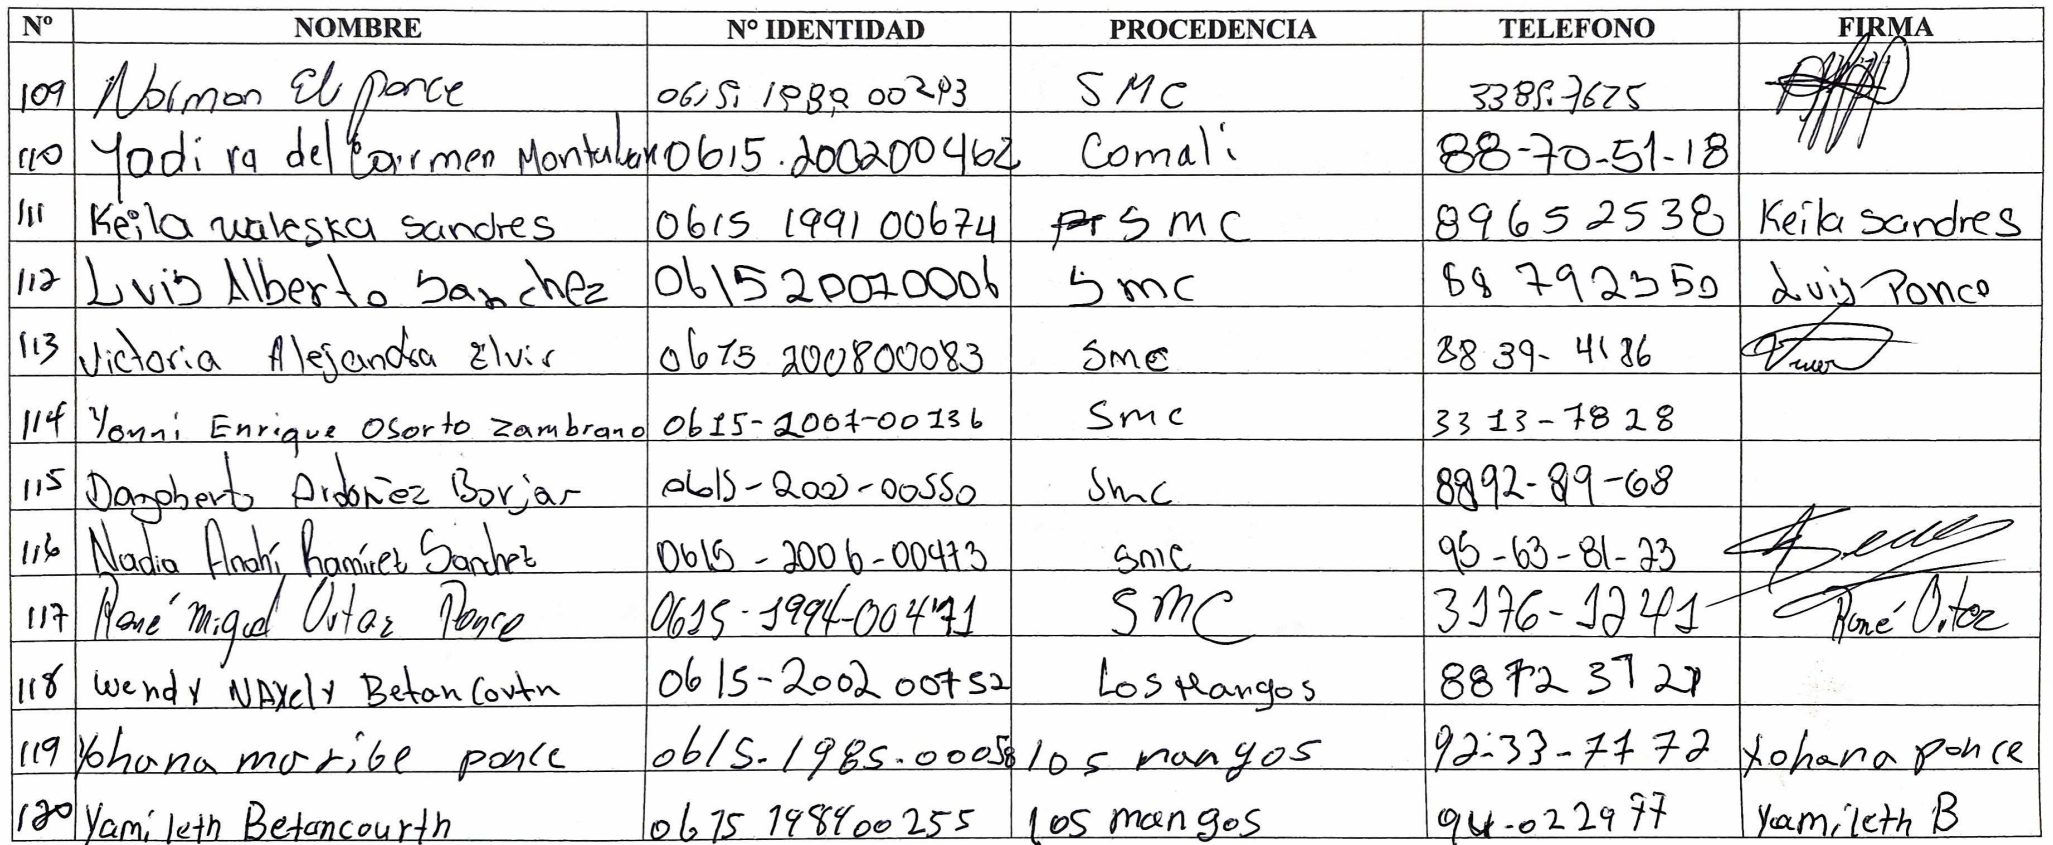 Nº NOMBRE Nº IDENTIDAD PROCEDENCIA TELEFONO FIRMA
109 Norman El ponce SMC
110 Yadira del Carmen 0615.200200462 Comali 88-70-51-18
111 Keila waleska sandres 0615 1991 00674 SMC 8965 2538 Keila Sandres
112 Luis Alberto Sanchez Smc Luis Ponce
113 Victoria Alejandra Elvir 0615 200800083 Smc 88 39- 4186
114 Yonni Enrique Osorto Zambrano 0615-2001-00136 Smc 33 13-7828
115 Dagoberto Ordoñez Borjas Smc 8892-89-68
116 Nadia Anahí Ramirez Sanchez 0615-2006-00473 smc 95-63-81-23
117 René Miguel Ponce SMC 3176-1241 René
118 Wendy 0615-2002 00752 Los Mangos
119 Yohana maribe ponce 0615-1985-00058 los mangos 92-33-7172 Yohana ponce
120 Yamileth Betancourth 0615 198400255 los mangos 94-022977 Yamileth B